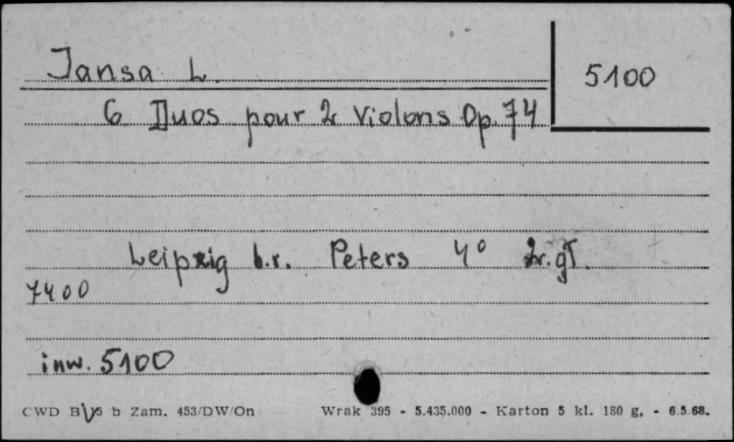 Jansa L.
5100
6 Duos pour 2 Violons Op. 74
Leipzig b.r. Peters 4° 2r.gł.
7400
inw. 5100
CWD B/5 b Zam. 453/DW/On Wrak 395 - 5.435.000 - Karton 5 kl. 180 g. - 6.5.68.